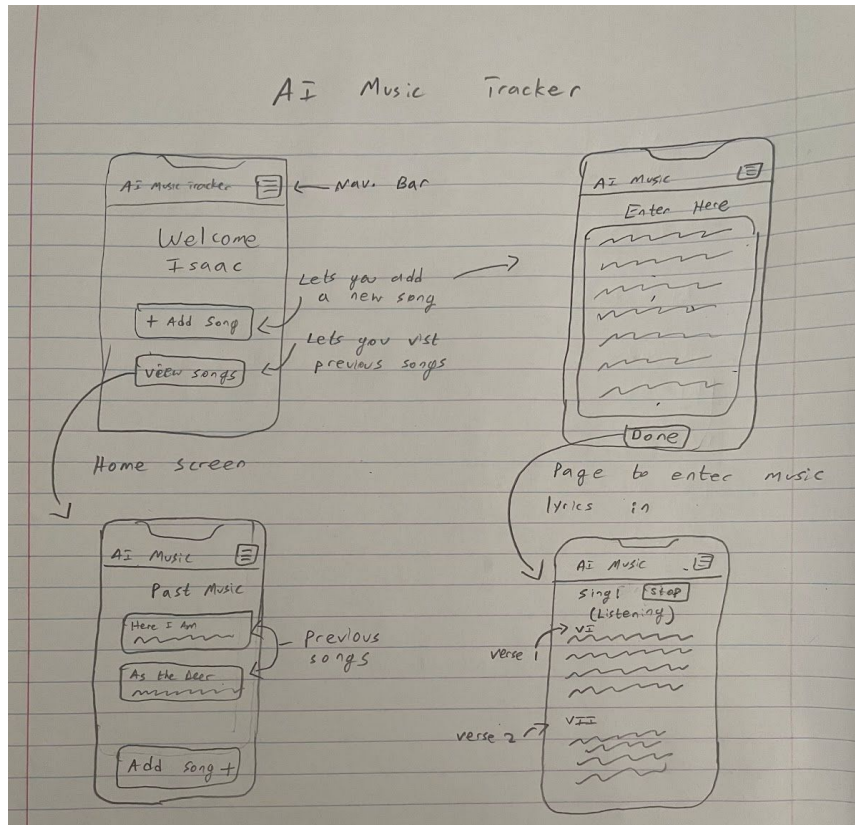 AI Music Tracker
AI Music Tracker
← Nav. Bar
Welcome
Isaac
Lets you add
a new song
+ Add Song
Lets you vist
previous songs
view songs
Home screen
AI Music
Enter Here
Done
Page to enter music
lyrics in
AI Music
Past Music
Here I Am
As the Deer
Previous
songs
Add Song +
AI Music
Sing! Stop
(Listening)
VI
verse 1
VII
verse 2